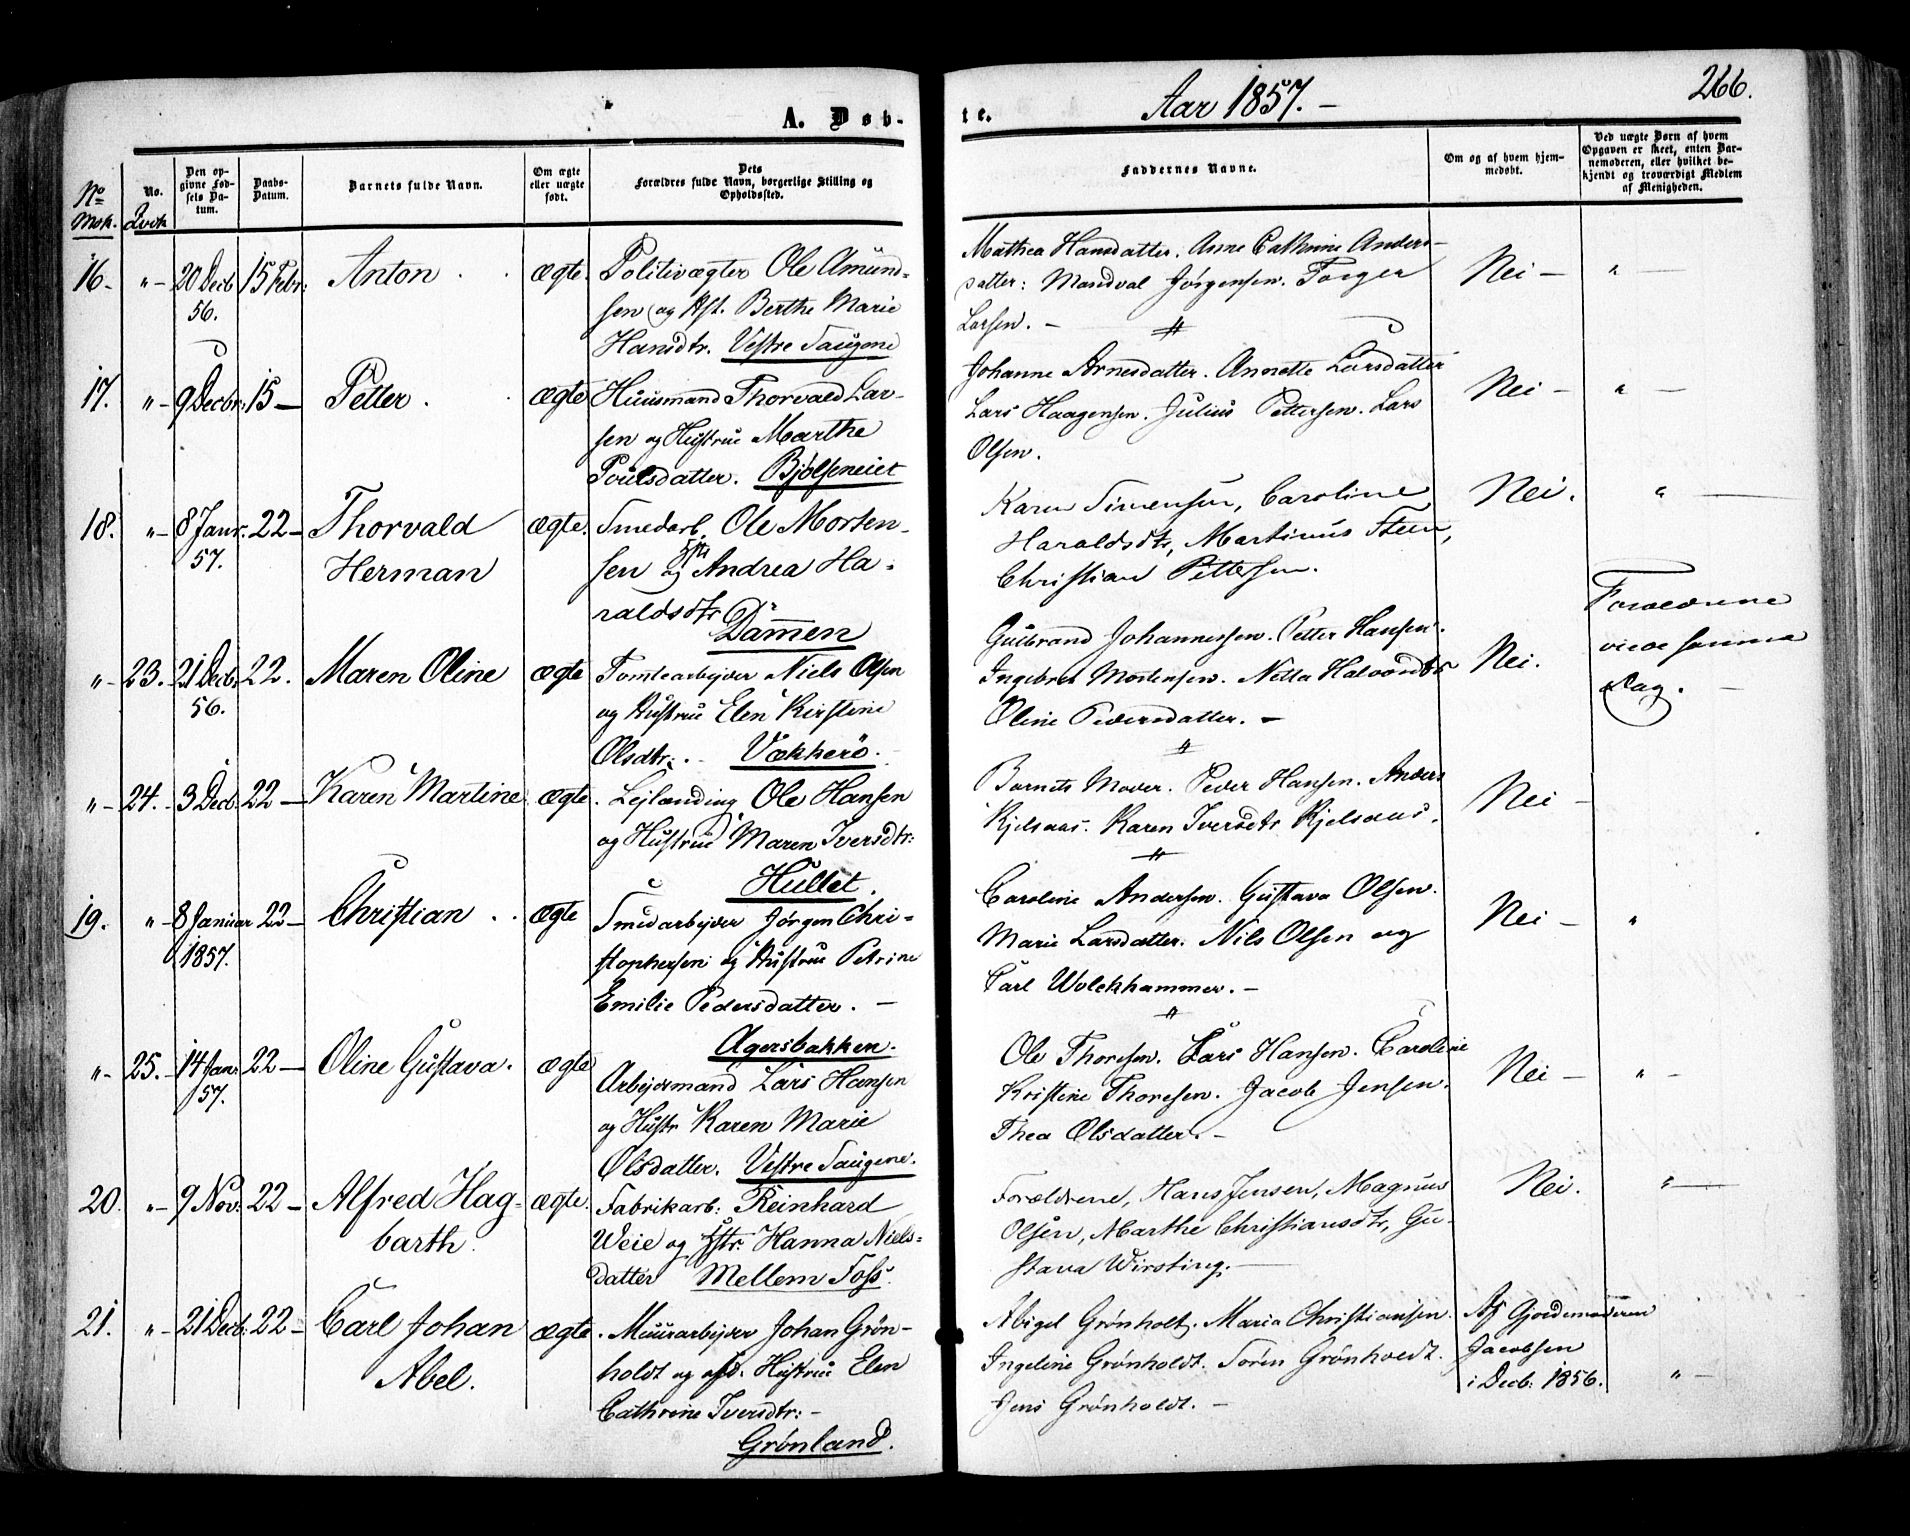 266.
A. Døb-
te. Aar 1857. —
No Msk.
No. Qvck
Den opgivne Fødsels Datum.
Daabs-Datum.
Barnets fulde Navn.
Om ægte eller uægte født.
Dets Forældres fulde Navn, borgerlige Stilling og Opholdssted.
Faddernes Navne.
Om og af hvem hjemmedøbt.
Ved uægte Børn af hvem Opgaven er skeet, enten Barnemoderen, eller hvilket bekjendt og troværdigt Medlem af Menigheden.
16. " 20 Decb 56. 15 Febr: Anton ægte.
Politivægter Ole Amund-
sen og Hst. Berthe Marie
Hansdtr. Vestre Saugene
Mathea Hansdatter. Anne Cathrine Anders-
datter: Mandval Jørgensen. Torger
Larsen. —
Nei — " —
17. " 9 Decbr: 15 — Petter. ægte
Huusmand Thorvald Lar-
sen og Hustrue Marthe
Poulsdatter. Bjølseneiet
Johanne Arnesdatter. Annette Larsdatter
Lars Haagensen. Julius Pettersen. Lars
Olsen.
Nei — " —
18. " 8 Janr. 57. 22 — Thorvald
Herman ægte.
Smedarb. Ole Morten-
sen og Hstr Andrea Ha-
raldsdtr Dammen
Karen Simensen, Caroline
Haraldsdtr, Martinus Steen,
Christian Pettersen.
Nei. " —
" 23. 21 Decb: 56. 22. Maren Oline ægte
Tomtearbejder Niels Olsen
og Hustrue Elen Kirstine
Olsdtr: Vækkerö.
Gulbrand Johannessen. Petter Hansen.
Ingebret Mortensen. Netta Halvorsdtr
Oline Pedersdatter. —
Nei.
Forældrene
viede samme
Dag. —
" 24. 3 Decb: 22 — Karen Martine ægte.
Lejlænding Ole Hansen
og Hustrue Maren Iversdtr:
Hullet.
Barnets Moder. Peder Hansen. Anders
Kjelsaas. Karen Iversdtr Kjelsaas.
Nei —
19. " 8 Januar 1857. 22 — Christian ægte
Smedarbejder Jørgen Chri-
stophersen og Hustrue Petrine
Emilie Pedersdatter. —
Agersbakken.
Caroline Andersen. Gustava Olsen.
Marie Larsdatter. Nils Olsen og
Carl Wolckhammer. —
Nei — "
" 25. 14 Jan: 57. 22 — Oline Gustava. ægte
Arbejdsmand Lars Hansen
og Hustr Karen Marie
Olsdatter. Vestre Saugene.
Ole Thoresen. Lars Hansen. Caroline
Kristine Thoresen. Jacob Jensen.
Thea Olsdatter. —
Nei — " —
20. " 9 Nov: 22 — Alfred Hag-
barth. ægte.
Fabrikarb: Reinhard
Weie og Hstr: Hanna Niels-
datter Mellem Foss.
Forældrene, Hans Jensen, Magnus
Olsen, Marthe Christiansdtr, Gu-
stava Wirsting. —
Nei. " —
21. " 21 Decb: 22 — Carl Johan
Abel. ægte.
Muurarbejder Johan Grøn-
holdt og afd. Hustrue Elen
Cathrine Iversdtr: —
Grønland.
Abigel Grønholt. Maria Christiansen.
Ingeline Grønholdt. Søren Grønholdt.
Jens Grønholdt. —
Af Gjordemoderen
Jacobsen
i Decb: 1856. " —